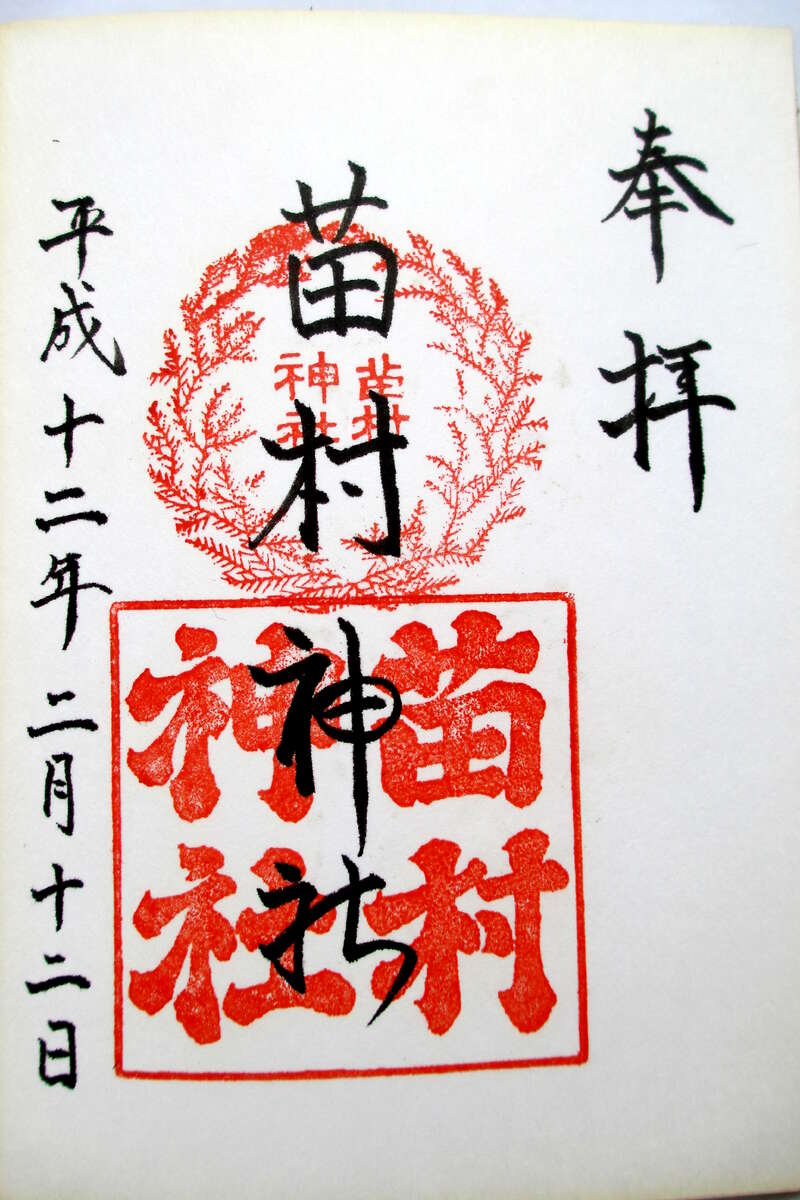 奉拝
苗村神社
苗村
神社
苗村
神社
平成十二年二月十二日